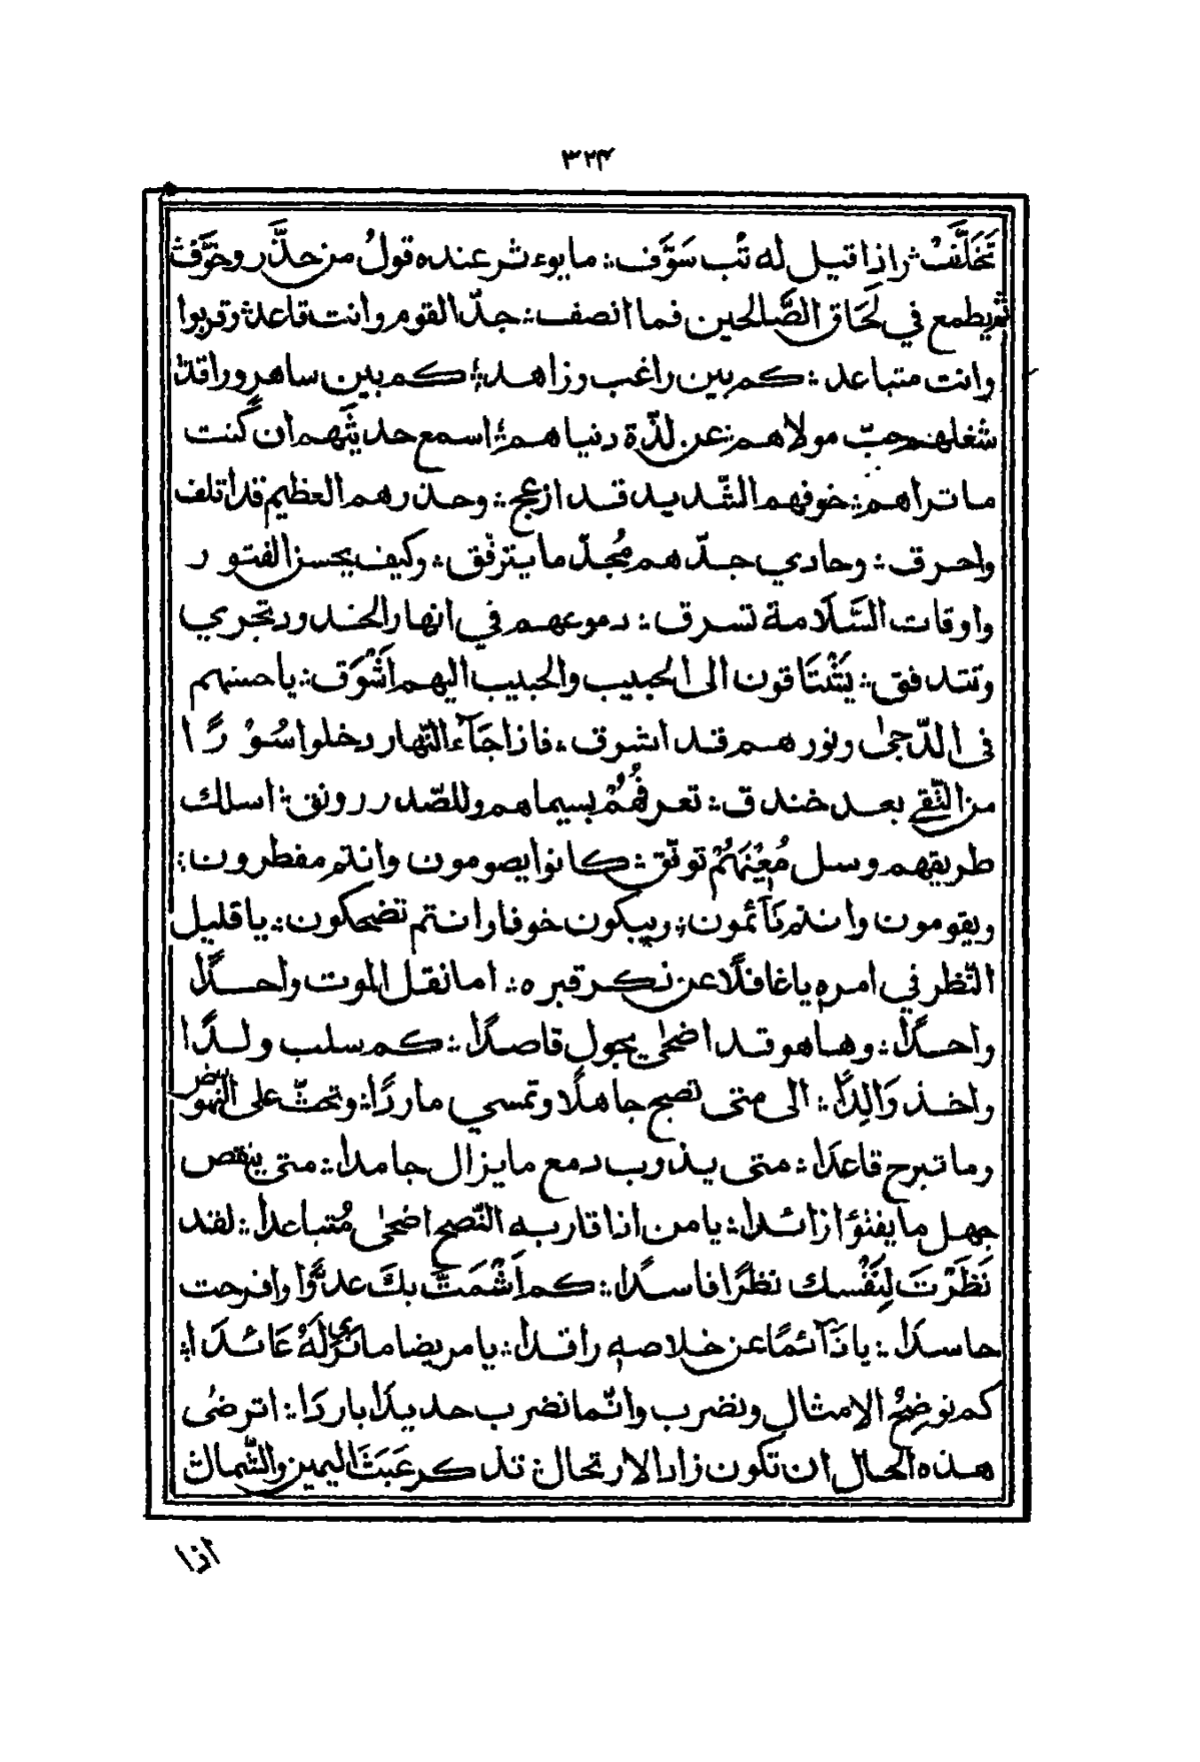 ٣٢٤
تَخَلَّفَ ؛ واذا قيل له تُب سَوَّف ؛ ما يوءثر عنده قولُ من حذَّر وخوَّف ؛
ثم يطمع في لَحَاق الصَّالحين فما انصف ؛ جدّ القوم وانت قاعد ؛ وقربوا
وانت متباعد ؛ كم بين راغب وزاهد ؛ كم بين ساهر وراقد ؛
شغلهم حبّ مولاهم عن لذّة دنياهم ؛ اسمع حديثَهم ان كُنت
ما تراهم ؛ خوفهم الشّديد قد ازعج ؛ وحذرهم العظيم قد اتلف
واحرق ؛ وحادي جدّهم مُجدّ ما يترفّق ؛ وكيف يحسن الفتور
واوقات السَّلَامة تسرق ؛ دموعهم في انهار الخدود تجري
وتتدفق ؛ يَشْتَاقون الى الحبيب والحبيب اليهم اَشْوَق ؛ يا حسنهم
في الدّجىٰ ونورهم قد اشرق ، فاذا جَآءَ النّهار دخلوا سُوْرًا
من التّقى بعد خندق ؛ تعرفُهُمْ بسيماهم وللصّدر رونق ؛ اسلك
طريقهم وسل مُعِيْنَهُمْ توفّق ؛ كانوا يصومون وانتم مفطرون ؛
ويقومون وانتم نَآئمون ؛ ويبكون خوفا وانتم تضحكون ؛ يا قليل
النّظر في امره يا غافلًا عن ذكر قبره ؛ اما نقل الموت واحدًا
واحدًا ؛ وها هو قد اضحىٰ يجول قاصدًا ؛ كم سلب ولدًا
واخذ وَالِدًا ؛ الى متى تصبح جاهلًا وتمسي ماردًا ؛ وتحثّ على النهوض
وما تبرح قاعدًا ؛ متى يذوب دمع ما يزال جامدا ؛ متى ينقص
جهل ما يفتؤا زائدا ؛ يا من اذا قاربه النّصح اضحىٰ مُتباعدا ؛ لقد
نَظَرْتَ لِنَفْسك نظرًا فاسدًا ؛ كم اَشْمَتَّ بكَ عدوًّا وافرحت
حاسدا ؛ يا نَآئمًا عن خلاصه راقدا ؛ يا مريضا ما نرىٰ لَهُ عَائدَا ؛
كم نوضحُ الامثال ونضرب وانّما نضرب حديدًا باردًا ؛ اترضىٰ
هذه الحال ان تكون زاد الارتحال ؛ تذكر عَبَثَ اليمين والشّمال ؛
اذا